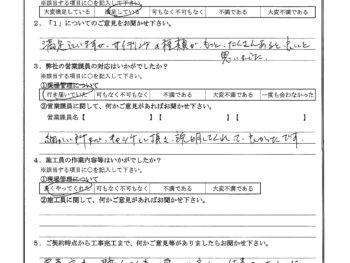 ※該当する項目に○を記入して下さい。
大変満足している 満足している 可もなく不可もなく 不満である 大変不満である
2．「1」についてのご意見をお聞かせ下さい。
満足していますが、サイディングの種類が、もっと、たくさんあると良いと
思いました。
3．弊社の営業課員の対応はいかがでしたか？
※該当する項目に○を記入して下さい。
①現場管理について
行き届いていた 可もなく不可もなく 不満である 大変不満である 一度も会わなかった
②営業課員に関して、何かご意見があればお聞かせ下さい。
営業課員名【 】【 】【 】
説明してくれて、よかったです。
4．施工員の作業内容等はいかがでしたか？
※該当する項目に○を記入して下さい。
①現場管理について
良くやってくれた 可もなく不可もなく 不満である 大変不満である
②施工員に関して、何かご意見があればお聞かせ下さい。
5．ご契約時点から工事完工まで、何かご意見等がありましたらお聞かせ下さい。